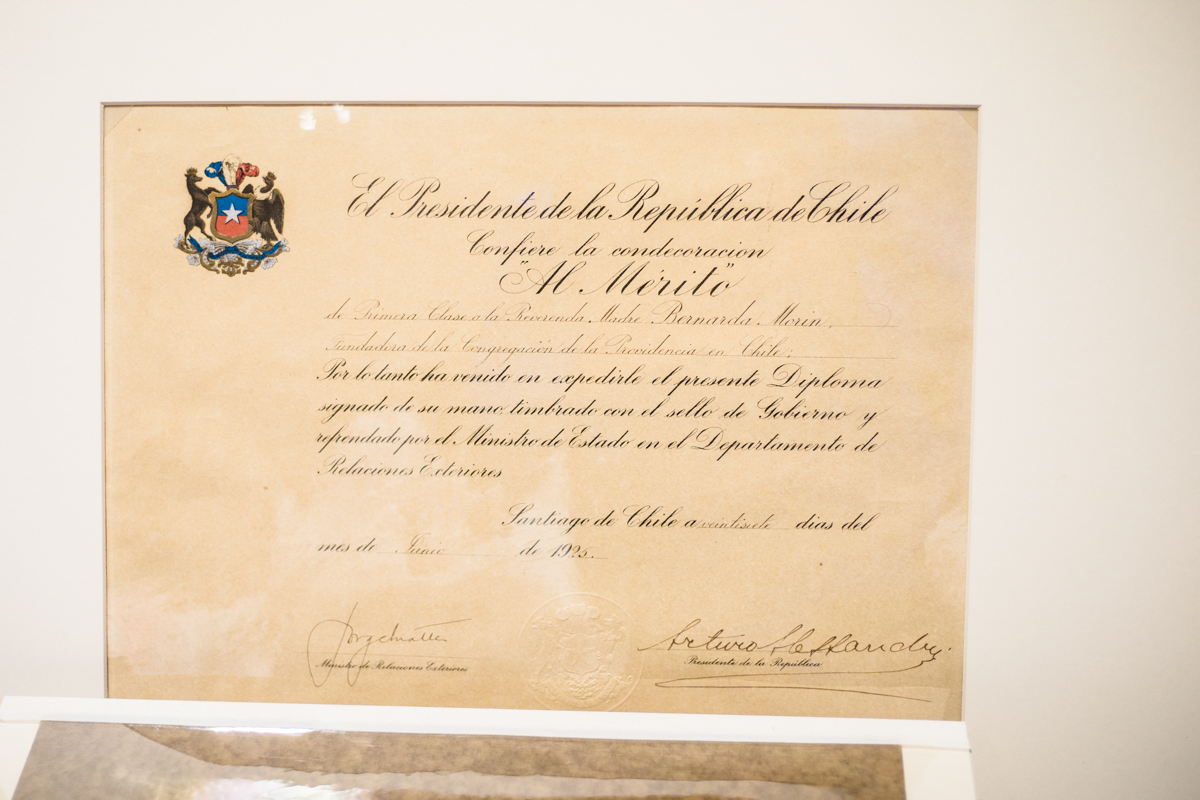 El Presidente de la República de Chile
Confiere la condecoracion
"Al Mérito"
de Primera Clase a la Reverenda Madre Bernarda Morin,
Fundadora de la Congregación de la Providencia en Chile;
Por lo tanto ha venido en expedirle el presente Diploma
signado de su mano, timbrado con el sello de Gobierno y
refrendado por el Ministro de Estado en el Departamento de
Relaciones Exteriores
Santiago de Chile a veintisiete dias del
mes de Junio de 1925.
Arturo Alessandri
Ministro de Relaciones Exteriores
Presidente de la República